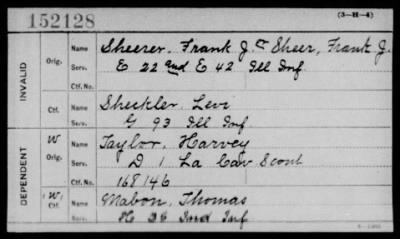 152128
(3-H-4)
Name Sheerer, Frank J. or Sheer, Frank J.
Orig. Serv. E 22 and E 42 Ill Inf.
Ctf. No.
INVALID
Name Sheckler, Levi
Ctf. Serv. G 93 Ill Inf
W Name Taylor, Harvey
Orig. Serv. D 1 La Cav Scout
Ctf. No. 168146
DEPENDENT
(W) Name Mabon, Thomas
Ctf. Serv. H 26 Ind Inf